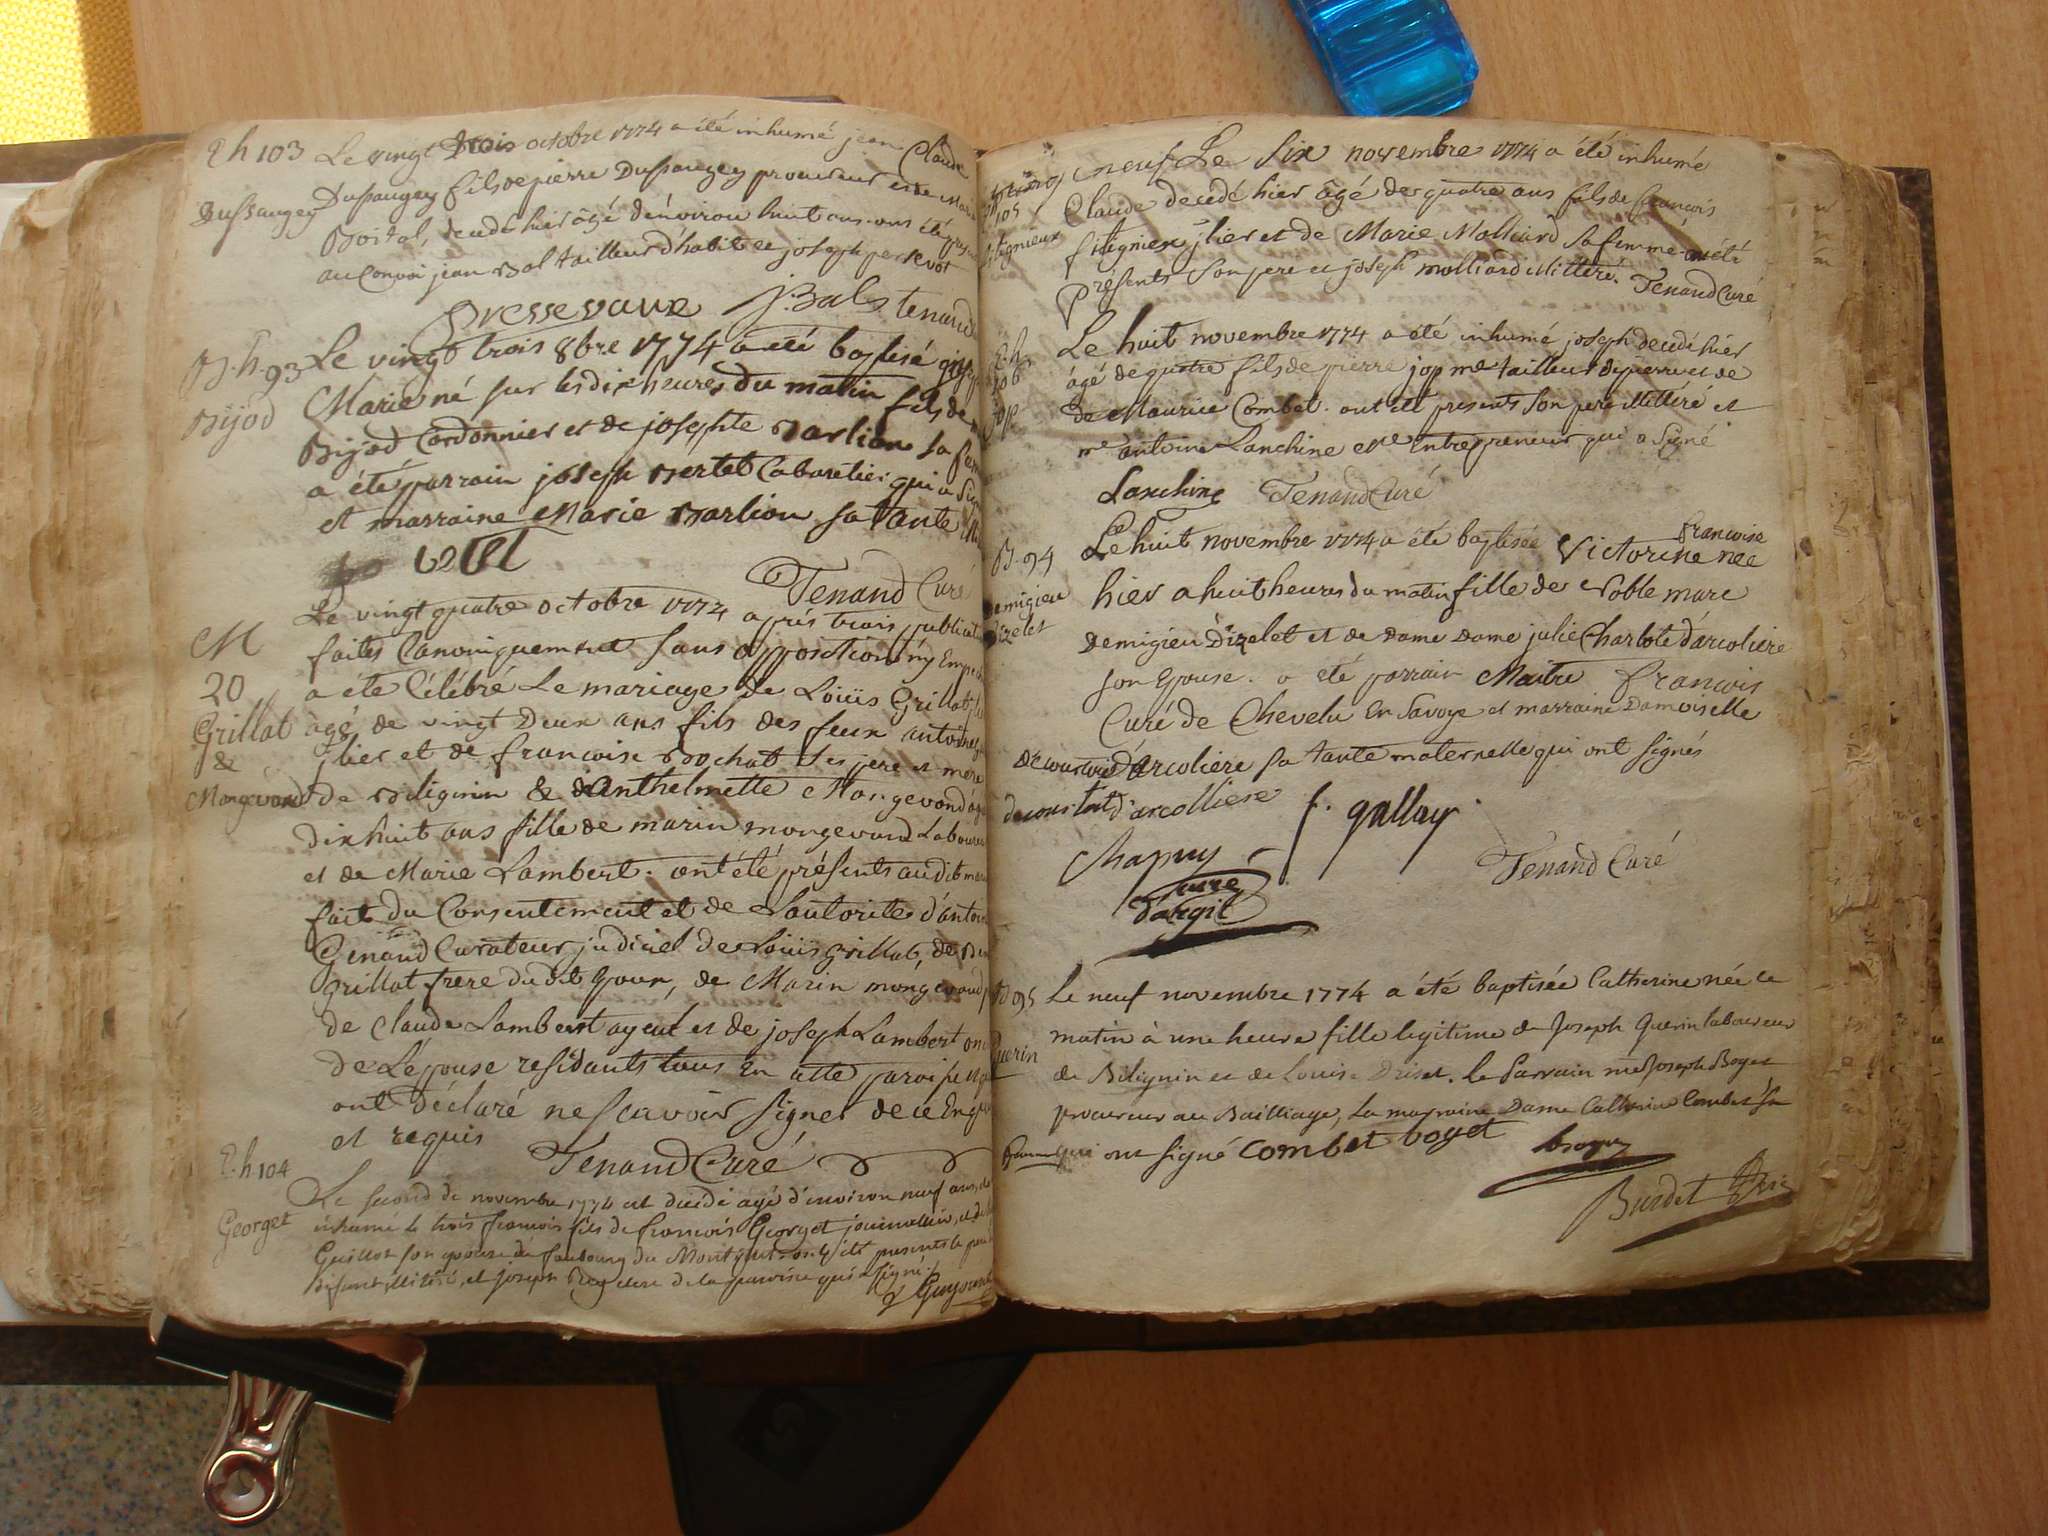 E h 103
Dussaugey
Le vingt trois octobre 1774 a été inhumé jean Claude
Dussaugey fils de pierre Dussaugey procureur et de Marie
décédé hier âgé d'environ huit ans. ont été
au Convoi jean Bal tailleur d'habits et joseph perssevot
pressevaux J: Bal tenand
B. h. 93
Bijod
Le vingt trois 8bre 1774 a été baptisé
Marie né sur les dix heures du matin fils de
Bijod Cordonnier et de josephte Barlion sa
a été parrain joseph Bertet Cabaretier qui a
et marraine Marie Barlion sa tante
Tenand Curé
M
20
Grillat
&
Mongevand
Le vingt quatre octobre 1774 après trois
faites Canoniquement sans opposition ny
a été Célébré Le mariage de Loüis Grillat
agé de vingt Deux ans fils des feux antoine
et de francoise Bochat ses pere et mere
de Biliginin & d'Anthelmette Mongevand
dixhuit ans fille de marin mongevand
et de Marie Lambert. ont été présents audit
fait du Consentement et de L'autorité d'
Genand Curateur judiciel de Loüis grillat, de
grillat frere dudit Epoux, de Marin mongevand
de Claude Lambert ayeul et de joseph Lambert
de L'épouse residants tous En cette paroisse
ont Déclaré ne scavoir signer de ce
et requis
Tenand Curé
E. h 104
Georget
Le second de novembre 1774 est décédé agé d'environ neuf ans,
inhumé le trois françois fils de françois Georget journalier, et de
Guillot son epouse du faubourg du Mont
illitéré, et joseph Rey clerc de la paroisse qui a signé.
neuf Le six novembre 1774 a été inhumé
105
Claude decedé hier âgé de quatre ans fils de francois
fitignieux et de Marie Molliard sa femme. ont été
Présents son pere et joseph molliard illitteré. Tenand Curé
E. h
106
jop
Le huit novembre 1774 a été inhumé joseph decedé hier
âgé de quatre fils de pierre jop me tailleur de pierre et de
de Maurice Combet. ont été presents son pere illitteré et
me antoine Lanchine Entrepreneur qui a signé
Lanchine Tenand Curé
B. 94
demigieu
Dizelet
Le huit novembre 1774 a été baptisée Victorine francoise née
hier a huit heures du matin fille de Noble marc
Demigieu Dizelet et de Dame Dame julie Charlote d'arcoliere
son Epouse. a été parrain Maitre francois
Curé de Chevelu En Savoye et marraine Damoiselle
D'arcoliere sa tante maternelle qui ont signés
deconstant d'arcolliere f. gallay
Chapuy
curé
Tenand Curé
B 95
Guerin
Le neuf novembre 1774 a été baptisée Catherine née ce
matin à une heure fille legitime de Joseph Guerin laboureur
de Bilignin et de Louise Driset. le Parrain me Joseph Boget
procureur au Bailliage, La marraine Dame Catherine Combet sa
femme qui ont signé Combet boget
Burdet